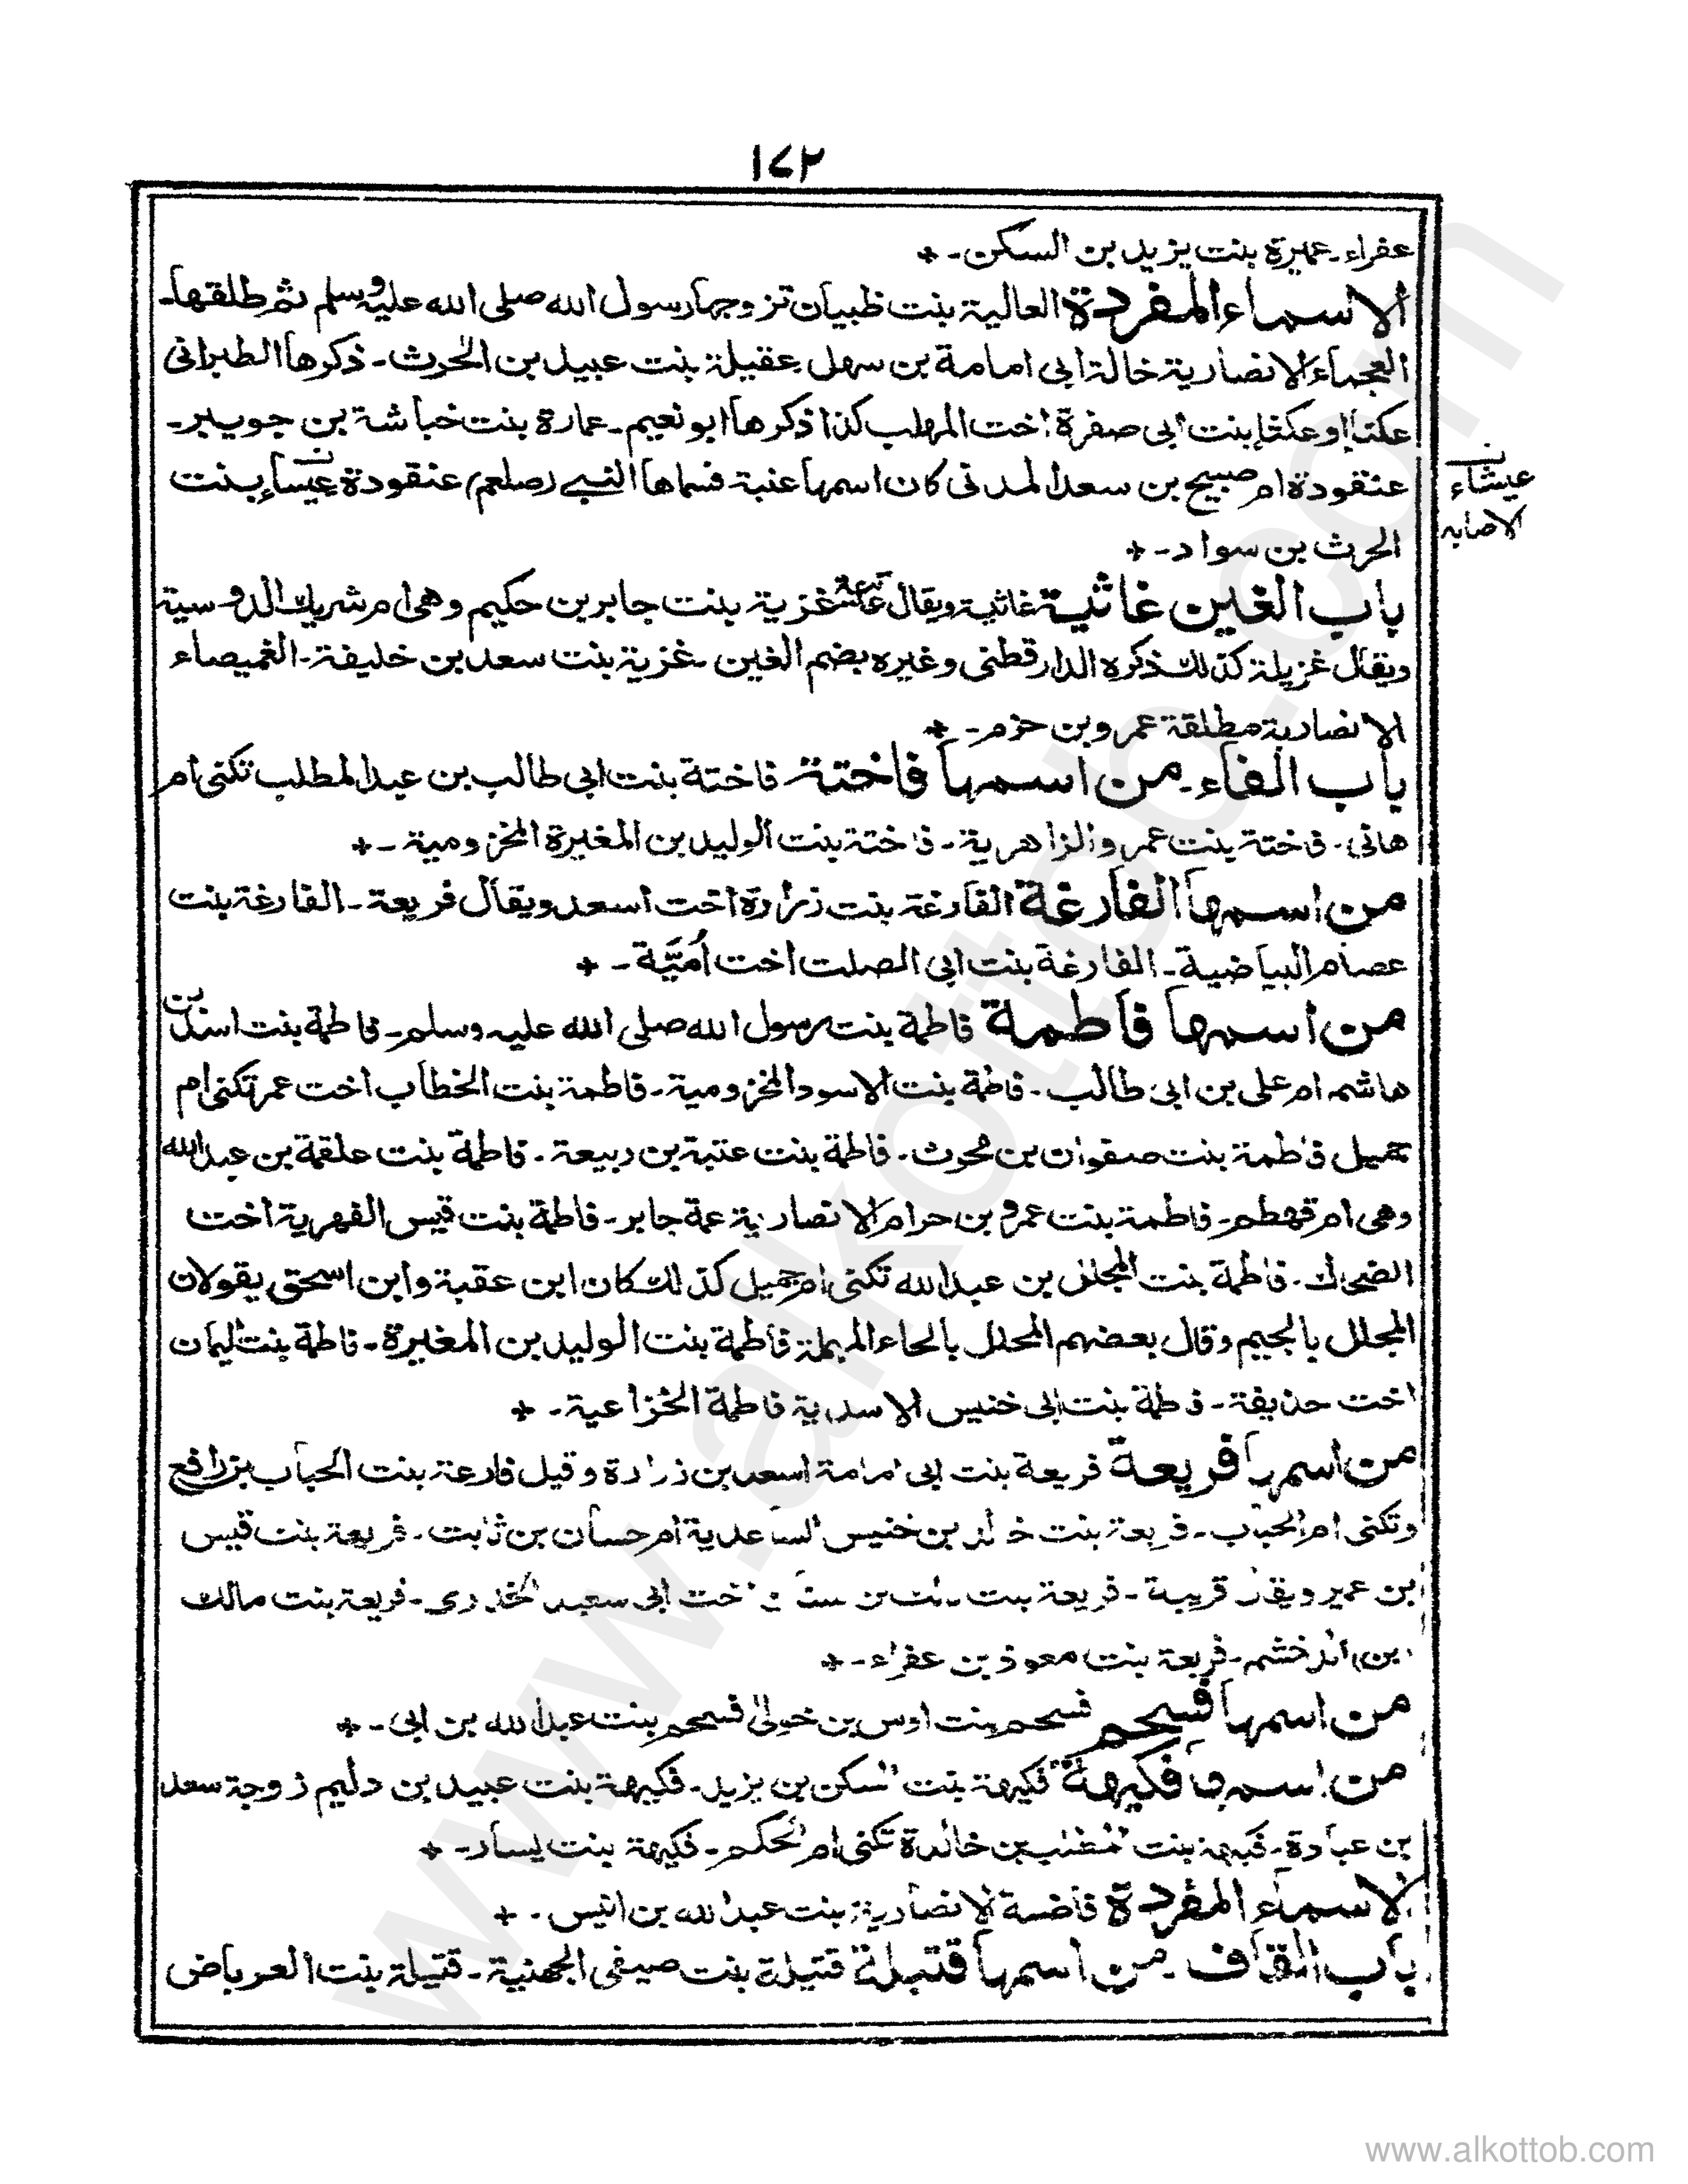 ١٧٢
عفراء ـ عميرة بنت يزيد بن السكن ـ +
الاسماء المفردة العالية بنت ظبيان تزوجها رسول الله صلى الله عليه وسلم ثم طلقها ـ
العجماء الانصارية خالة ابى امامة بن سهل عقيلة بنت عبيد بن الحرث ـ ذكرها الطبرانى
بنت ابى صفرة اخت المهلب كذا ذكرها ابو نعيم ـ عمارة بنت خباشة بن جويبر ـ
عنقودة ام صبيح بن سعد المدنى كان اسمها عنبة فسماها النبي (صلعم) عنقودة عيساء بنت
ن
عيشاء
الاصابه
الحرث بن سواد ـ +
باب الغين غاثية غاثية ويقال غزية بنت جابر بن حكيم وهى ام شريك الدوسية
ويقال غزيلة كذلك ذكره الدارقطنى وغيره بضم الغين ـ غزية بنت سعد بن خليفة ـ الغميصاء
الانصارية مطلقة عمرو بن حزم ـ +
باب الفاء ـ من اسمها فاختة فاختة بنت ابى طالب بن عبد المطلب تكنى ام
هانى ـ فاختة بنت عمرو الزاهرية ـ فاختة بنت الوليد بن المغيرة المخزومية ـ +
من اسمها الفارغة الفارغة بنت زرارة اخت اسعد ويقال فريعة ـ الفارغة بنت
عصام البياضية ـ الفارغة بنت ابى الصلت اخت أُمَيَّة ـ +
من اسمها فاطمة فاطمة بنت رسول الله صلى الله عليه وسلم ـ فاطمة بنت اسد بن
هاشم ام على بن ابى طالب ـ فاطمة بنت الاسود المخزومية ـ فاطمة بنت الخطاب اخت عمر تكنى ام
جميل فاطمة بنت صفوان بن محرث ـ فاطمة بنت عتبة بن ربيعة ـ فاطمة بنت علقمة بن عبد الله
وهى ام قهطم ـ فاطمة بنت عمرو بن حرام الانصارية عمة جابر ـ فاطمة بنت قيس الفهرية اخت
الضحاك ـ فاطمة بنت المجلل بن عبد الله تكنى ام جميل كذلك كان ابن عقبة وابن اسحق يقولان
المجلل بالجيم وقال بعضهم المحلل بالحاء المهملة فاطمة بنت الوليد بن المغيرة ـ فاطمة بنت اليمان
اخت حذيفة ـ فاطمة بنت ابى خنيس الاسدية فاطمة الخزاعية ـ +
من اسمها فريعة فريعة بنت ابى امامة اسعد بن زرارة وقيل فارعة بنت الحباب بن رافع
وتكنى ام الحباب ـ فريعة بنت خالد بن خنيس الساعدية ام حسان بن ثابت ـ فريعة بنت قيس
بن عمير ويقال قريبة ـ فريعة بنت مالك بن سنان اخت ابى سعيد الخدرى ـ فريعة بنت مالك
بن الدخشم ـ فريعة بنت معوذ بن عفراء ـ +
من اسمها فسحم فسحم بنت اوس بن خولى فسحم بنت عبد الله بن ابى ـ +
من اسمها فكيهة فكيهة بنت السكن بن يزيد ـ فكيهة بنت عبيد بن دليم زوجة سعد
بن عبادة ـ فكيهة بنت المطلب بن خالدة تكنى ام الحكم ـ فكيهة بنت يسار ـ +
الاسماء المفردة فاضسة الانصارية بنت عبد الله بن انيس ـ +
باب القاف ـ من اسمها قتيلة قتيلة بنت صيفى الجهنية ـ قتيلة بنت العرباض
www.alkottob.com
www.alkottob.com